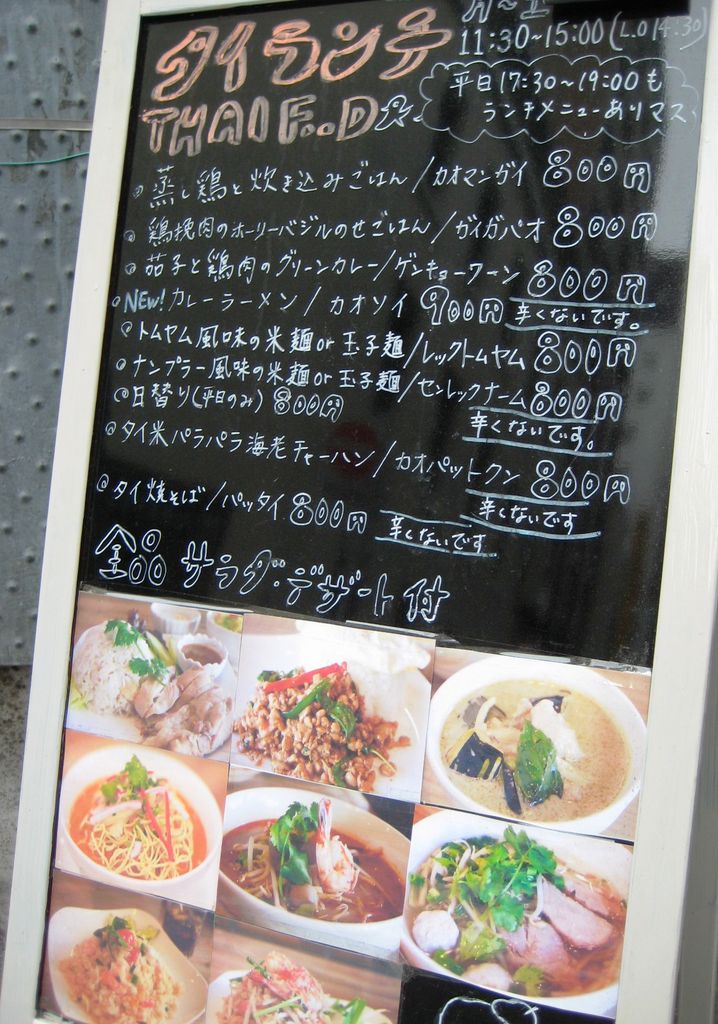 タイランチ
THAI FOOD
月~土
11:30~15:00(L.O 14:30)
平日17:30~19:00も
ランチメニューあります
蒸し鶏と炊き込みごはん/カオマンガイ 800円
鶏挽肉のホーリーバジルのせごはん/ガイガパオ 800円
茄子と鶏肉のグリーンカレー/ゲンキョーワーン 800円
NEW!カレーラーメン/カオソイ 900円 辛くないです。
トムヤム風味の米麺or玉子麺/レックトムヤム 800円
ナンプラー風味の米麺or玉子麺/センレックナーム 800円
日替り(平日のみ)800円 辛くないです。
タイ米パラパラ海老チャーハン/カオパットクン 800円
辛くないです
タイ焼そば/パッタイ 800円 辛くないです
全品 サラダ・デザート付